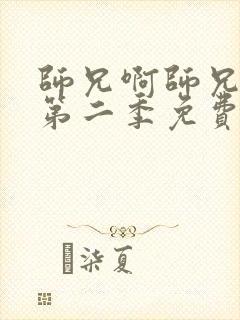 師兄啊師兄
第二季免費
柒夏